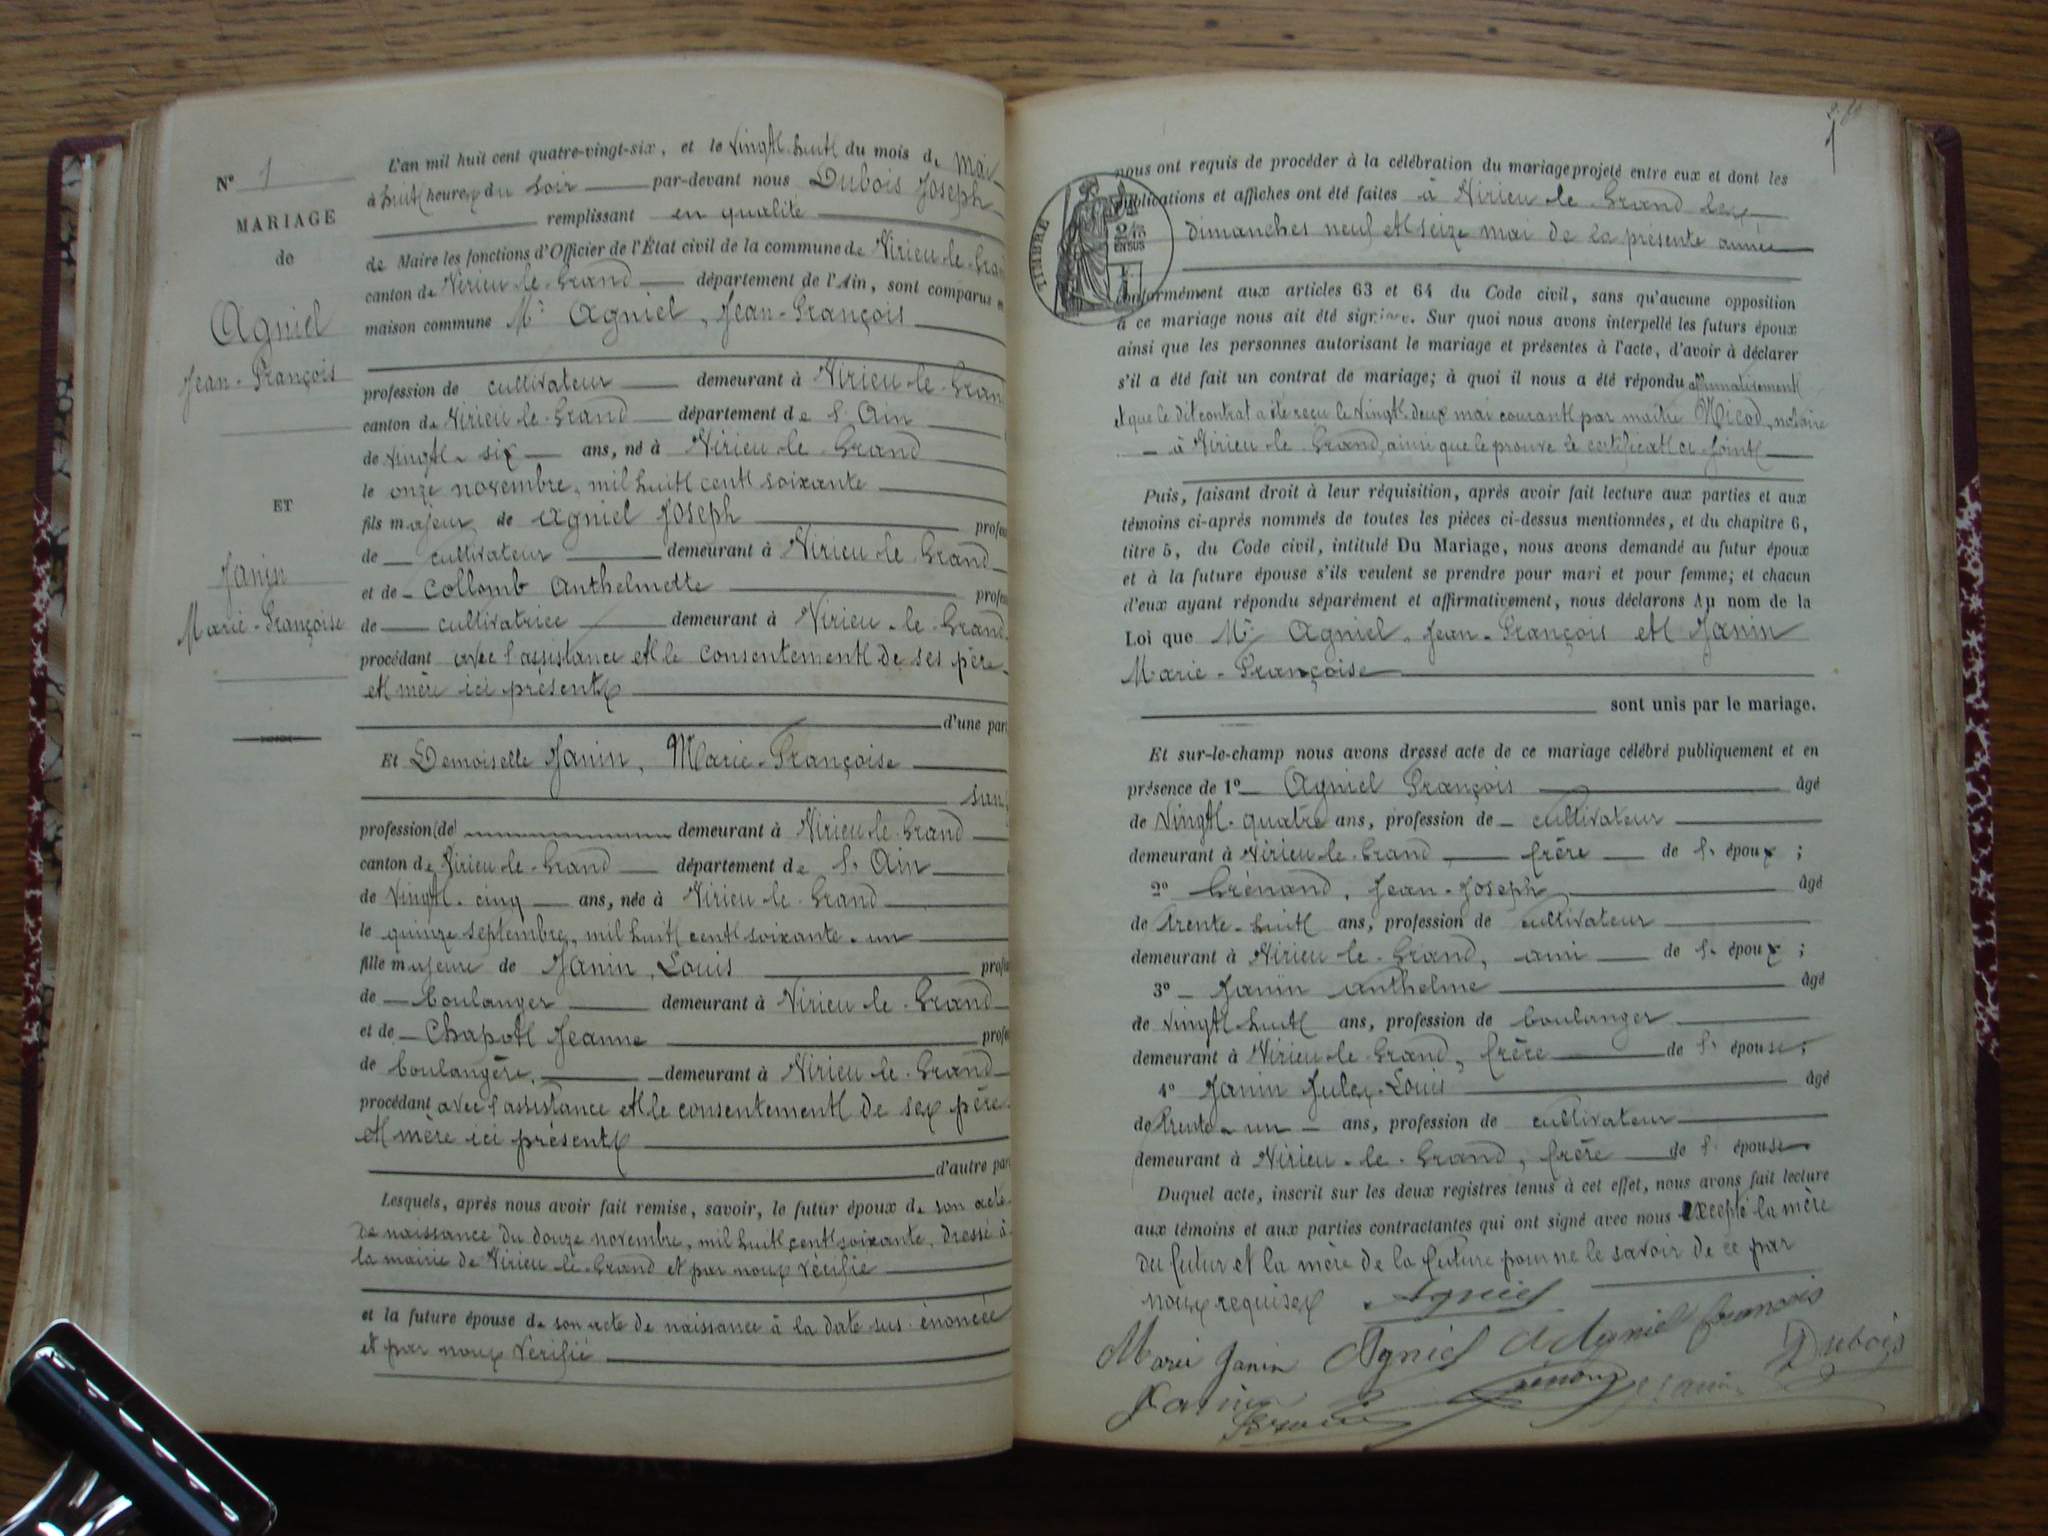 N° 1
MARIAGE
de
Agniel
Jean-François
ET
Janin
Marie-Françoise
L'an mil huit cent quatre-vingt-six, et le vingt-huit du mois de Mai
à huit heures du soir par-devant nous Dubois Joseph
remplissant en qualité
de Maire les fonctions d'Officier de l'État civil de la commune de Virieu-le-Grand
canton de Virieu-le-Grand département de l'Ain, sont comparus en
maison commune Mr Agniel, Jean-François
profession de cultivateur demeurant à Virieu-le-Grand
canton de Virieu-le-Grand département de l'Ain
de vingt-six ans, né à Virieu-le-Grand
le onze novembre, mil huit cent soixante
fils majeur de Agniel Joseph profes
de cultivateur demeurant à Virieu-le-Grand
et de Collomb Anthelmette profes
de cultivatrice demeurant à Virieu-le-Grand
procédant avec l'assistance et le consentement de ses père
et mère ici présents
d'une par
Et Demoiselle Janin, Marie-Françoise
sans
profession (de) demeurant à Virieu-le-Grand
canton de Virieu-le-Grand département de l'Ain
de vingt-cinq ans, née à Virieu-le-Grand
le quinze septembre, mil huit cent soixante-un
fille majeure de Janin, Louis profes
de boulanger demeurant à Virieu-le-Grand
et de Chapot Jeanne profe
de boulangère demeurant à Virieu-le-Grand
procédant avec l'assistance et le consentement de ses père
et mère ici présents
d'autre par
Lesquels, après nous avoir fait remise, savoir, le futur époux de son acte
de naissance du douze novembre, mil huit cent soixante, dressé à
la mairie de Virieu-le-Grand et par nous vérifié
et la future épouse de son acte de naissance à la date sus-énoncée
et par nous vérifié
1
nous ont requis de procéder à la célébration du mariage projeté entre eux et dont les
publications et affiches ont été faites à Virieu-le-Grand les
dimanches neuf et seize mai de la présente année
TIMBRE
conformément aux articles 63 et 64 du Code civil, sans qu'aucune opposition
à ce mariage nous ait été signifiée. Sur quoi nous avons interpellé les futurs époux
ainsi que les personnes autorisant le mariage et présentes à l'acte, d'avoir à déclarer
s'il a été fait un contrat de mariage; à quoi il nous a été répondu affirmativement
et que le dit contrat a été reçu le vingt-deux mai courant par maître Nicod, notaire
à Virieu-le-Grand, ainsi que le prouve le certificat ci-joint
Puis, faisant droit à leur réquisition, après avoir fait lecture aux parties et aux
témoins ci-après nommés de toutes les pièces ci-dessus mentionnées, et du chapitre 6,
titre 5, du Code civil, intitulé Du Mariage, nous avons demandé au futur époux
et à la future épouse s'ils veulent se prendre pour mari et pour femme; et chacun
d'eux ayant répondu séparément et affirmativement, nous déclarons Au nom de la
Loi que Mr Agniel, Jean-François et Janin
Marie-Françoise
sont unis par le mariage.
Et sur-le-champ nous avons dressé acte de ce mariage célébré publiquement et en
présence de 1° Agniel François âgé
de vingt-quatre ans, profession de cultivateur
demeurant à Virieu-le-Grand frère de l'époux;
2° Grénand, Jean-Joseph âgé
de trente-huit ans, profession de cultivateur
demeurant à Virieu-le-Grand, ami de l'époux;
3° Janin Anthelme âgé
de vingt huit ans, profession de boulanger
demeurant à Virieu-le-Grand, frère de l'épouse;
4° Janin Jules-Louis âgé
de trente-un ans, profession de cultivateur
demeurant à Virieu-le-Grand, frère de l'épouse
Duquel acte, inscrit sur les deux registres tenus à cet effet, nous avons fait lecture
aux témoins et aux parties contractantes qui ont signé avec nous excepté la mère
du futur et la mère de la future pour ne le savoir de ce par
nous requises Agniel
Marie Janin Agniel Agniel françois Dubois
Janin Grenand Janin